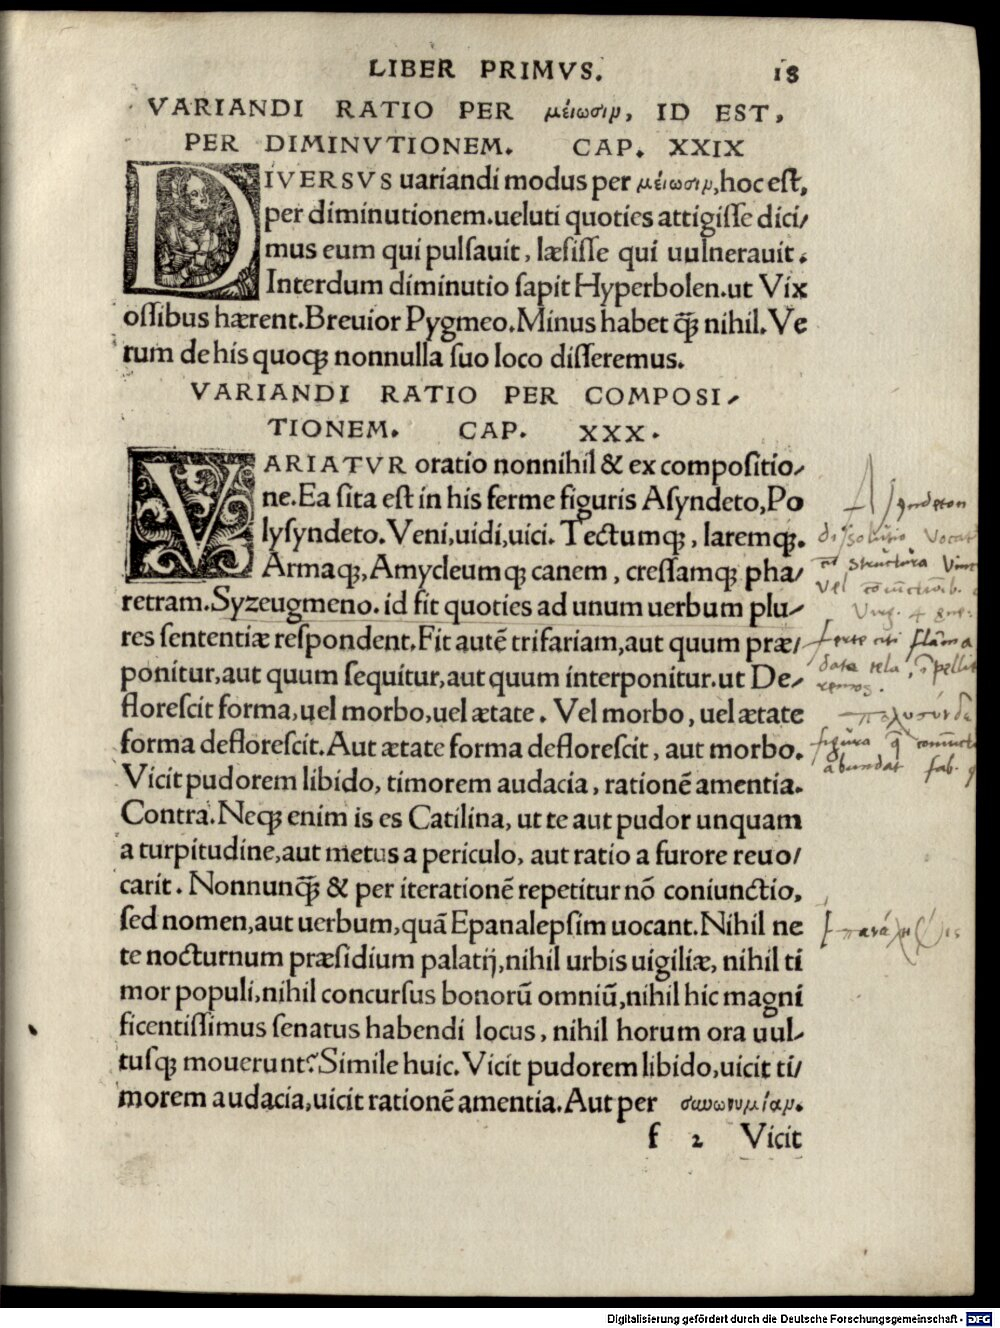 LIBER PRIMVS. 18
VARIANDI RATIO PER μείωσιν, ID EST,
PER DIMINVTIONEM. CAP. XXIX
DIVERSVS uariandi modus per μείωσιν, hoc est,
per diminutionem. ueluti quoties attigisse dici/
mus eum qui pulsauit, læsisse qui uulnerauit.
Interdum diminutio sapit Hyperbolen. ut Vix
ossibus hærent. Breuior Pygmeo. Minus habet q̃ꝫ nihil. Ve
rum de his quoqꝫ nonnulla suo loco disseremus.
VARIANDI RATIO PER COMPOSI/
TIONEM. CAP. XXX.
VARIATVR oratio nonnihil & ex compositio/
ne. Ea sita est in his ferme figuris Asyndeto, Po
lysyndeto. Veni, uidi, uici. Tectumqꝫ, laremqꝫ.
Armaqꝫ, Amycleumqꝫ canem, cressamqꝫ pha/
retram. Syzeugmeno. id fit quoties ad unum uerbum plu/
res sententiæ respondent. Fit autē trifariam, aut quum præ/
ponitur, aut quum sequitur, aut quum interponitur. ut De/
florescit forma, uel morbo, uel ætate. Vel morbo, uel ætate
forma deflorescit. Aut ætate forma deflorescit, aut morbo.
Vicit pudorem libido, timorem audacia, rationē amentia.
Contra. Neqꝫ enim is es Catilina, ut te aut pudor unquam
a turpitudine, aut metus a periculo, aut ratio a furore reuo/
carit. Nonnunq̃ꝫ & per iterationē repetitur nō coniunctio,
sed nomen, aut uerbum, quā Epanalepsim uocant. Nihil ne
te nocturnum præsidium palatij, nihil urbis uigiliæ, nihil ti
mor populi, nihil concursus bonorū omniū, nihil hic magni
ficentissimus senatus habendi locus, nihil horum ora uul/
tusqꝫ mouerunt? Simile huic. Vicit pudorem libido, uicit ti/
morem audacia, uicit rationē amentia. Aut per συνωνυμίαν.
f 2 Vicit
Asyndeton
dissolutio vocat
structura
vel
Virg. 4
ferte citi flāma
date tela, īpellit
remos.
πολυσύνδε
figura
abundat fab.
ἐπανάληψις
Digitalisierung gefördert durch die Deutsche Forschungsgemeinschaft - DFG